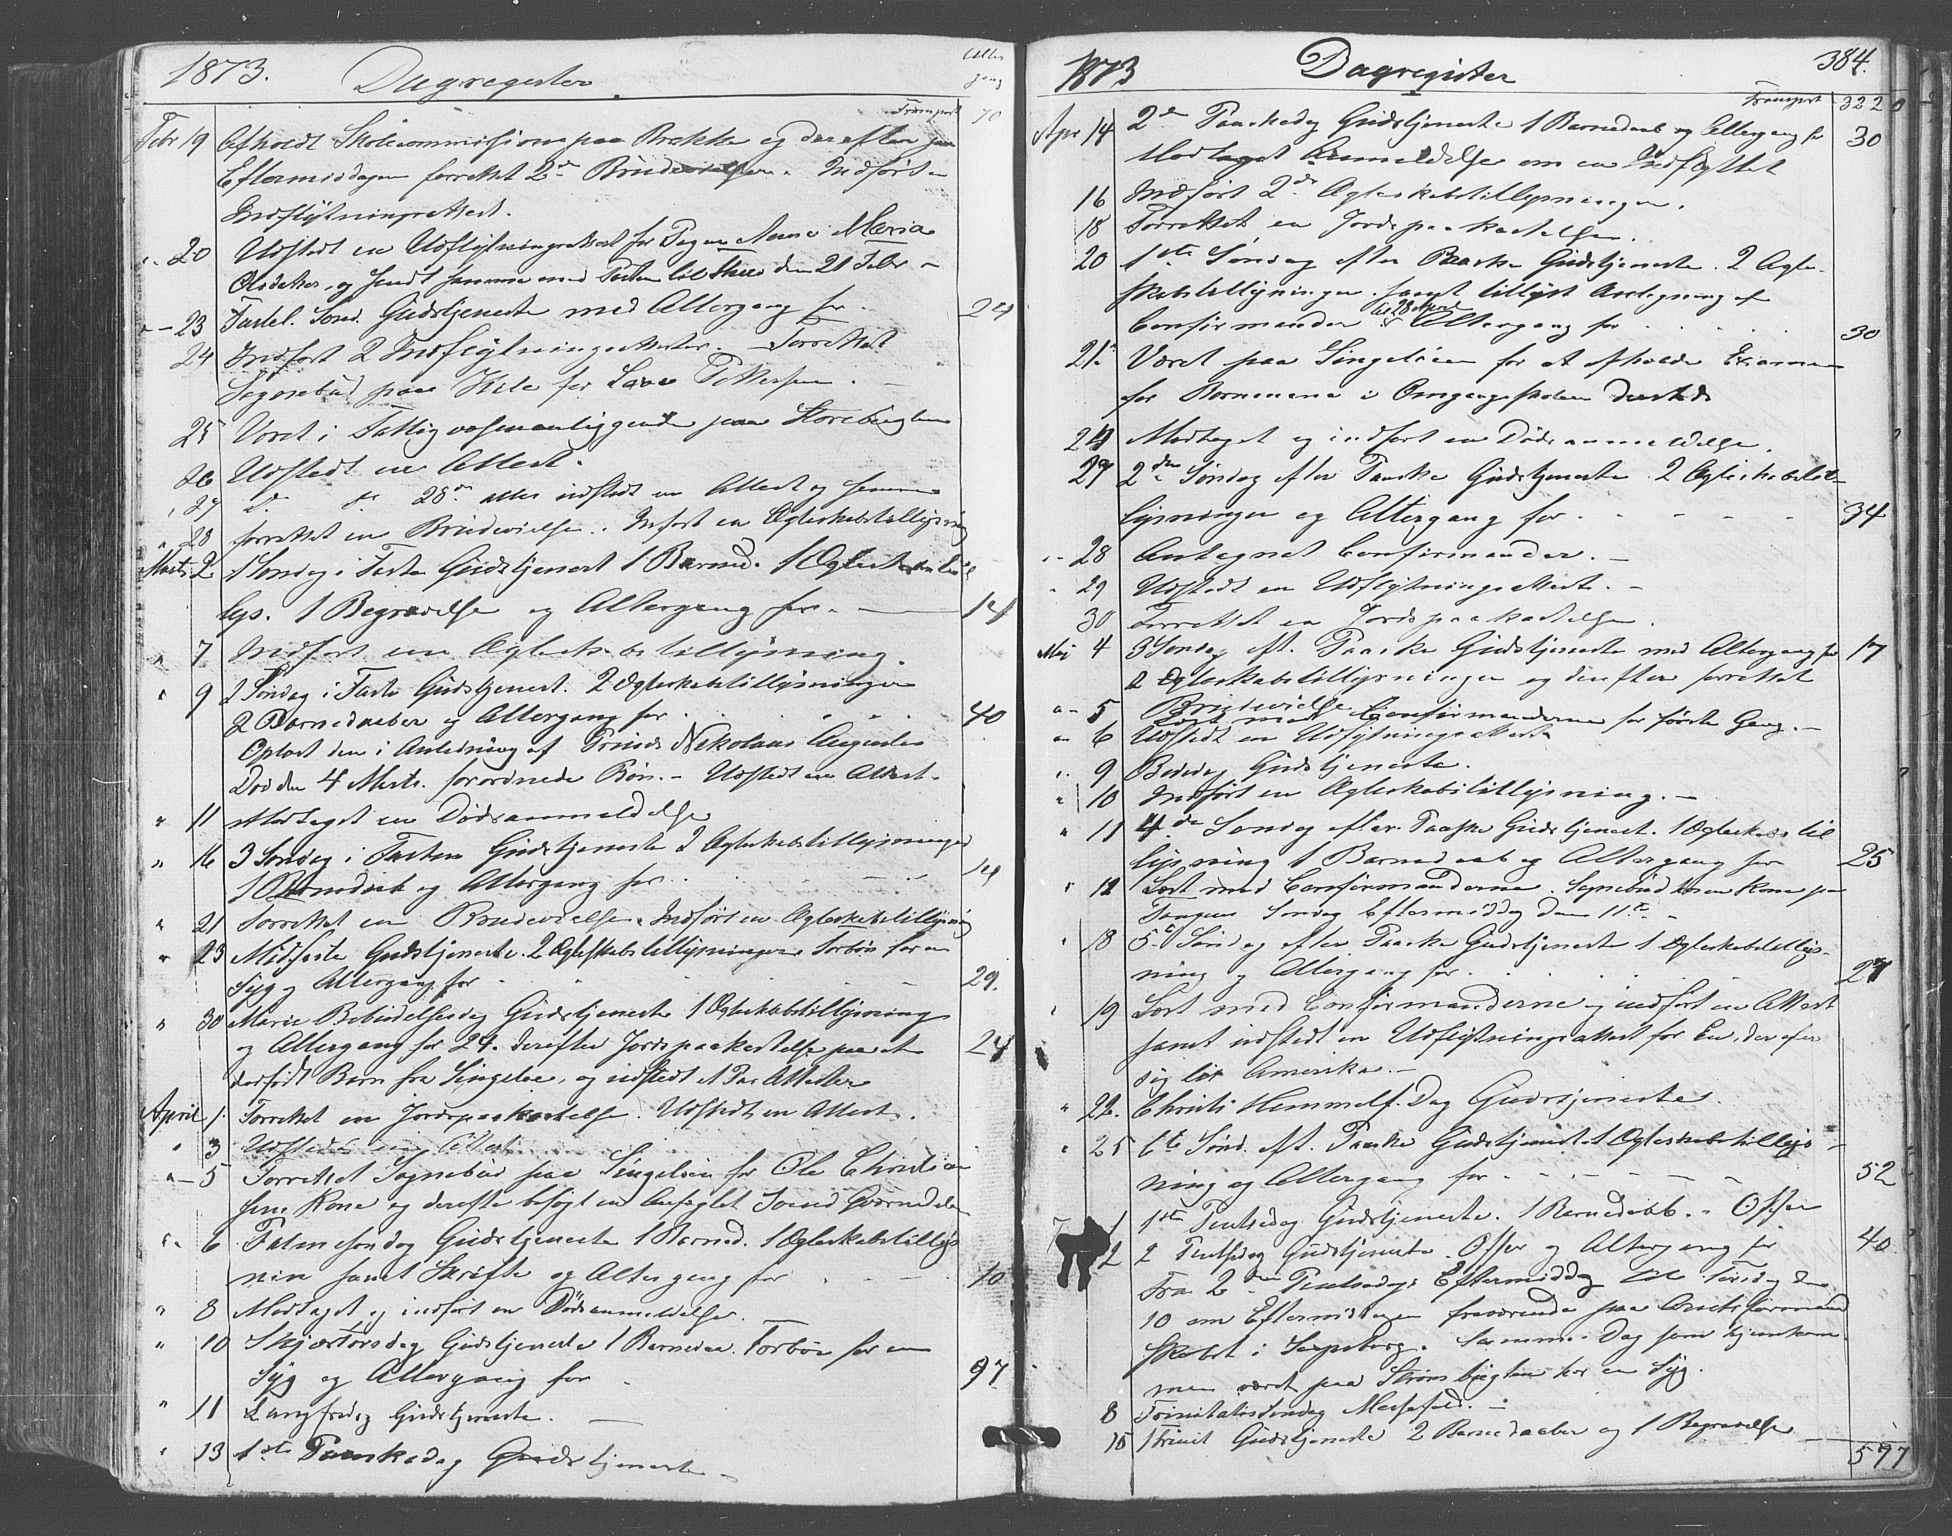 1873. Dagregister Alter
gang
Transport 70
Febr 19 Afholdt Skolecommission paa Brekke og derefter paa
Eftermiddagen forrettet 2de Brudevielser. Indført en
Indflytningsattest.
" 20 Udstedt en Udflytningsattest for Pigen Anne Maria
Olsdatter, og sendt samme med Posten til den 21 Febr –
" 23 Fastel. Sønd. Gudstjeneste med Altergang for 24
24 Indført 2 Indflytningsattester. – Forrettet
Sognebud paa for Lars Pettersen. –
25 Været i Fattigvæsenanliggender paa Storebinglen
26 Udstedt en Attest.
" 27 Do do 28de atter udstedt en Attest og samme
" 28 forrettet en Brudevielse. Indført en Ægteskabstillysning
Marts 2 1 Søndag i Faste Gudstjenest 1 Barned. 1 Ægteskabstil
lys. 1 Begravelse og Altergang for. – 14
" 7 Indført en Ægteskabstillysning.
" 9 2 Søndag i Faste Gudstjenest. 2 Ægteskabstillysninger
2 Barnedaaber og Altergang for . . . 40
Oplæst den i Anledning af Prinds Nikolaus Augusts
Død den 4 Marts forordnede Bøn. – Udstedt en Attest.
" 11 Modtaget en Dødsanmeldelse
" 16 3 Søndag i Fasten Gudstjeneste 2 Ægteskabstillysninger
1 Barnedaab og Altergang for . . 14
" 21 Forrettet en Brudevielse. Indført en Ægteskabstillysning
" 23 Midfaste Gudstjeneste. 2 Ægteskabstillysninger. Forbøn for en
Syg og Altergang for . . 29.
" 30 Marie Bebudelsesdag Gudstjeneste 1 Ægteskabstillysning
og Altergang for 24. derefter Jordspaakastelse paa et 24
dødfødt Barn fra Singeløe, og udstedt et Par Attester
April 1. Forrettet en Jordspaakastelse. Udstedt en Attest.
" 3 Udstedt en Attest.
" 5 Forrettet Sognebud paa Singeløen for Ole Christian
sens Kone og derefter besøgt en
" 6 Palmesøndag Gudstjeneste 1 Barned. 1 Ægteskabstillys
nin samt Skrifte og Altergang for . . 10
" 8 Modtaget og indført en Dødsanmeldelse.
" 10 Skjærtorsdag Gudstjeneste 1 Barnedaa. Forbøn for en
Syg og Altergang for . 97
" 11 Langfredag Gudstjeneste. –
" 13 1ste Paaskedag Gudstjeneste –
1873 Dagregister 384.
Transport 322
Apr 14 2den Paaskedag Gudstjeneste 1 Barnedaab og Altergang for 30
Modtaget Anmeldelse om en Indflyttet
16 Indført 2de Ægteskabstillysninger.
18 Forrettet en Jordspaakastelse.
20 1ste Søndag efter Paaske Gudstjeneste. 2 Ægte-
skabstillysninger. samt tillyst Antegning af
Confirmander til 28 Altergang for . . . 30
21. Været paa Singeløen for at afholde Examen
for Børnene i Omgangsskolen dersteds
24 Modtaget og indført en Dødsanmeldelse.
27 2den Søndag efter Paaske Gudstjeneste 2 Ægteskabstil
lysninger og Altergang for . – – – 34
" 28 Antegnet Confirmander. –
" 29 Udstedt en Udflytningsattest. –
30 Forrettet en Jordspaakastelse.
Mai 4 3 Søndag eft. Paaske Gudstjeneste med Altergang for 17
2 Ægteskabstillysninger og derefter forrettet
Brudevielse
" 5 Læst med Confirmanderne for første Gang. –
" 6 Udstedt en Udflytningsattest
" 9 Bededag Gudstjeneste.
" 10 Indført en Ægteskabstillysning. –
" 11 4de Søndag efter Paaske Gudstjenest. 1 Ægteskabstil
lysning 1 Barnedaab og Altergang for 25
" 12 Læst med Confirmanderne. Sognebud hos en Kone paa
Tangen Søndag Eftermiddag den 11te –
" 18 5te Søndag efter Paaske Gudstjeneste 1 Ægteskabstillys-
ning og Altergang for . . . . . 27
" 19 Læst med Confirmanderne og indført en Attest
samt udstedt en Udflytningsattest for En, der
sig til Amerika. –
" 22. Christi Himmelf. Dag Gudstjeneste.
" 25 6te Sønd. eft. Paaske Gudstjenest. 1 Ægteskabstillys
ning og Altergang for – – – 52
1 1ste Pintsedag Gudstjeneste. 1 Barnedaab. – Offer
2 2 Pintsedag Gudstjeneste. Offer og Altergang for 40
Fra 2den Pintsedags Eftermiddag til Tirsdag den
10 om Eftermiddagen fraværende paa
skabet i Sarpsborg. Samme Dag som hjemkom
men været paa Strømsbinglen hos en Syg.
8 Trinitatissøndag Messefald. –
15 1 Trinit Gudstjeneste 2 Barnedaaber og 1 Begravelse
577